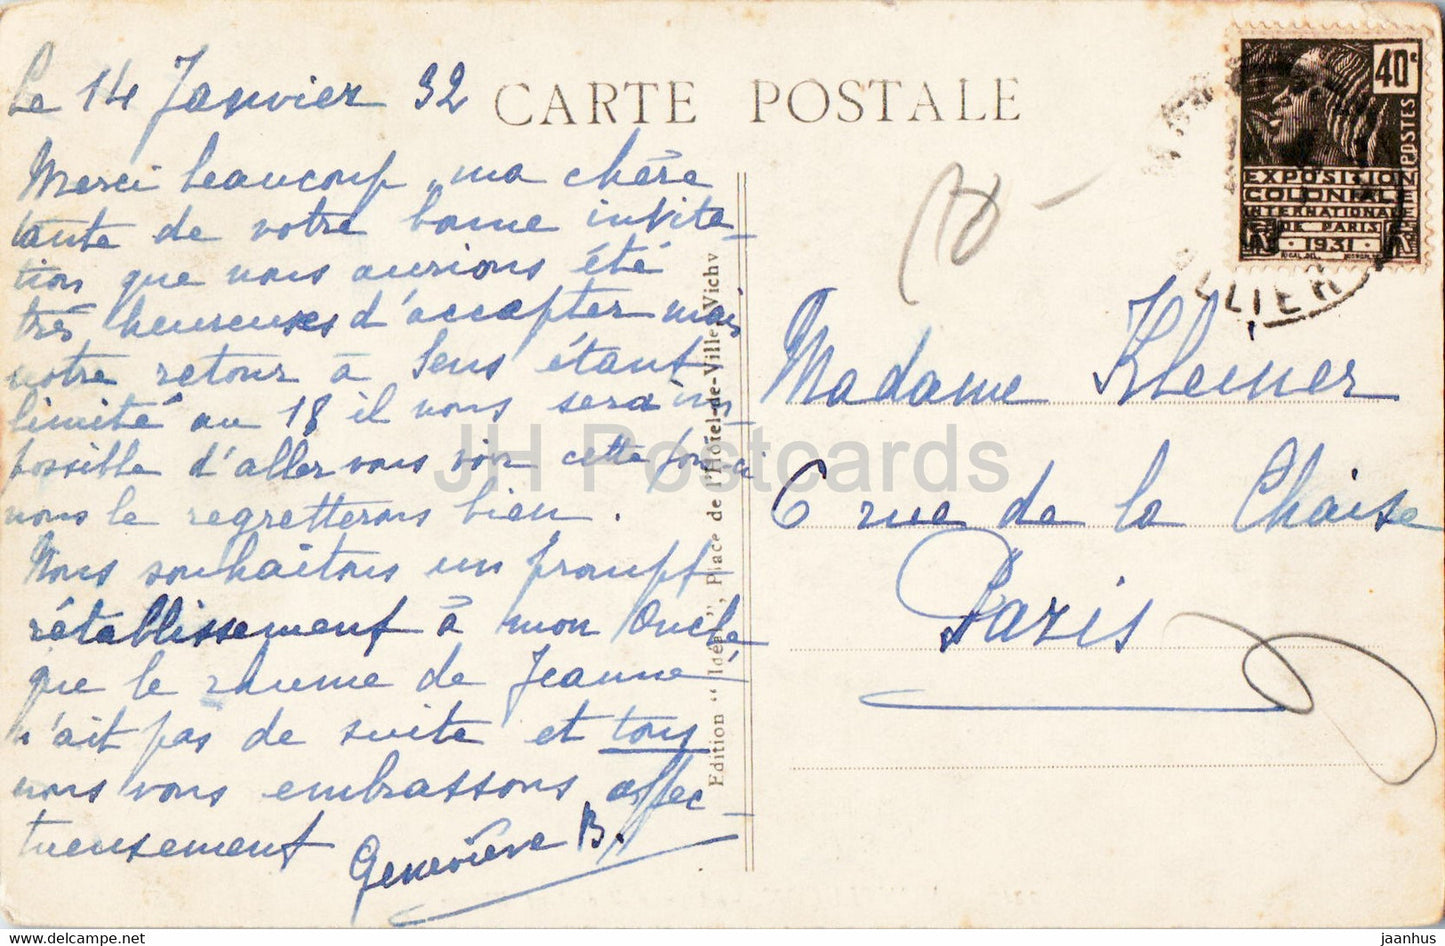 Le 14 Janvier 32
CARTE POSTALE
Merci beaucoup, ma chère
tante de votre bonne invita_
tion que nous aurions été
très heureuses d'accepter mais
notre retour à Sens étant
limité au 18 il nous sera im
possible d'aller vous voir cette fois ci
nous le regretterons bien.
Nous souhaitons un prompt
rétablissement à mon Oncle
que le rhume de Jeanne
n'ait pas de suite et tous
nous vous embrassons affec_
tueusement
Geneviève B.
Edition "Idéal", Place de l'Hôtel-de-Ville, Vichy
40c
POSTES
EXPOSITION
COLONIALE
INTERNATIONALE
DE PARIS
1931
LLIER
Madame Kleiner
6 rue de la Chaise
Paris
JH Postcards
jaanhus.com